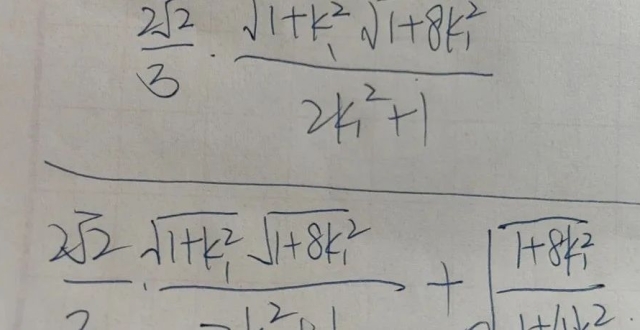 2√2/3 · √1+k₁² √1+8k₁² / 2k₁²+1
2√2 · √1+k₁² √1+8k₁² + √1+8k₁²